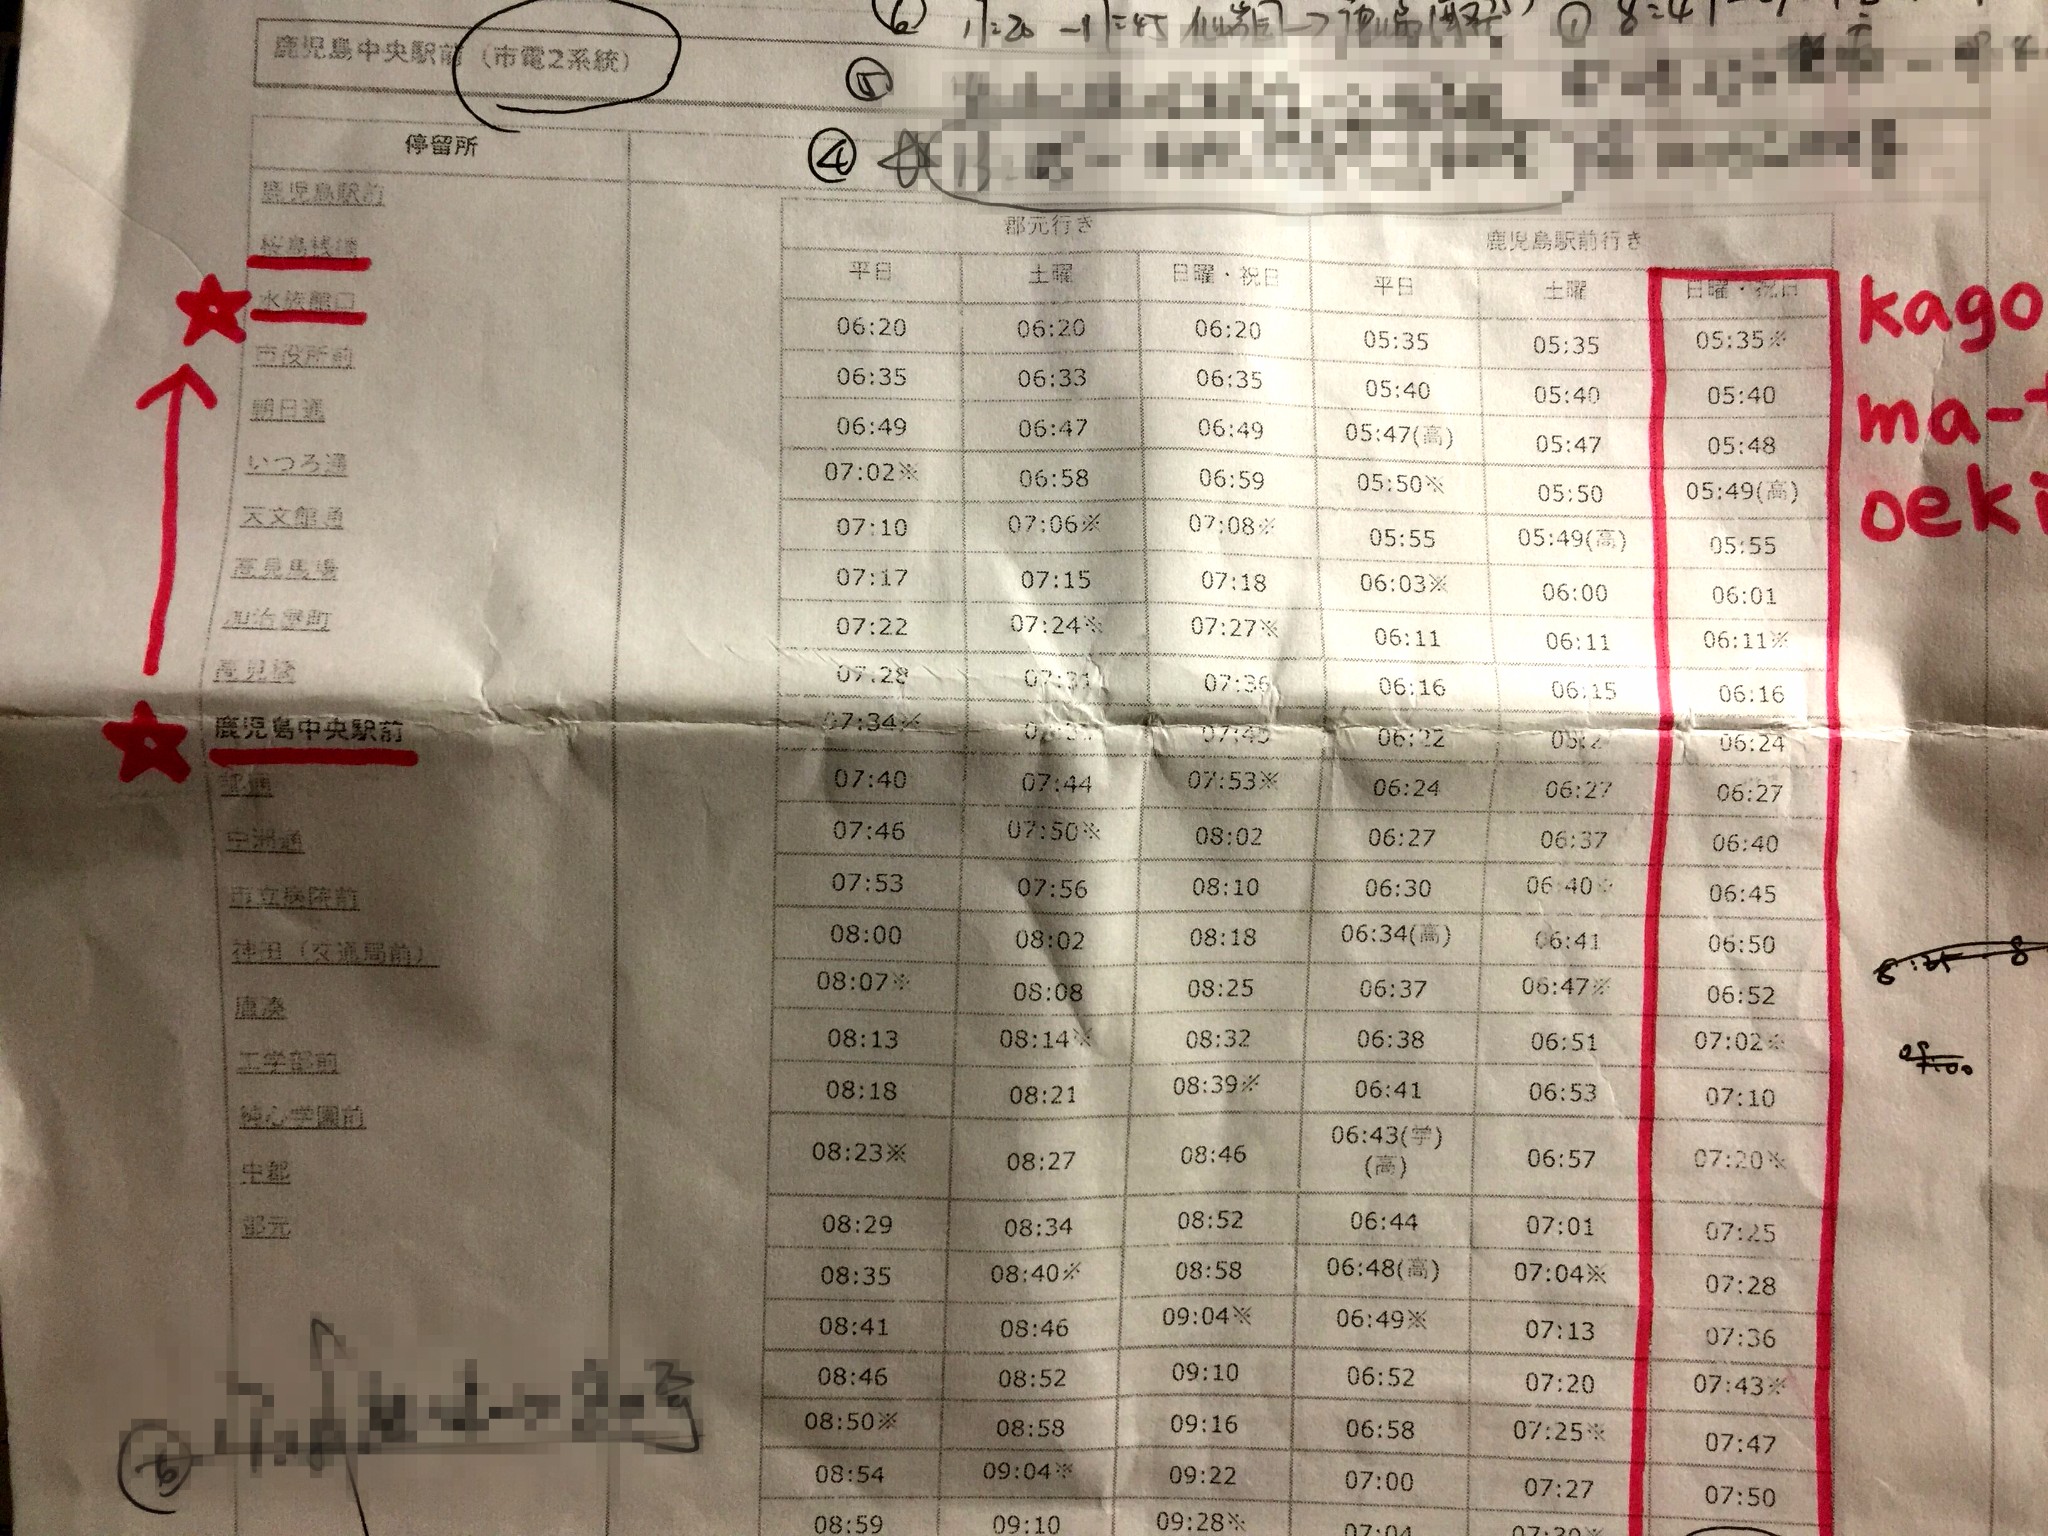 鹿児島中央駅前（市電2系統）
⑥ 11=20 -11=45
⑤
④
停留所
鹿児島駅前
桜島桟橋
水族館口
市役所前
朝日通
いづろ通
天文館通
高見馬場
加治屋町
高見橋
鹿児島中央駅前
都通
中洲通
市立病院前
神田（交通局前）
唐湊
工学部前
純心学園前
中郡
郡元
郡元行き 鹿児島駅前行き
平日 土曜 日曜・祝日 平日 土曜 日曜・祝日
06:20 06:20 06:20 05:35 05:35 05:35※
06:35 06:33 06:35 05:40 05:40 05:40
06:49 06:47 06:49 05:47(高) 05:47 05:48
07:02※ 06:58 06:59 05:50※ 05:50 05:49(高)
07:10 07:06※ 07:08※ 05:55 05:49(高) 05:55
07:17 07:15 07:18 06:03※ 06:00 06:01
07:22 07:24※ 07:27※ 06:11 06:11 06:11※
07:28 07:31 07:36 06:16 06:15 06:16
07:34※ 07:45 06:22 06:24
07:40 07:44 07:53※ 06:24 06:27 06:27
07:46 07:50※ 08:02 06:27 06:37 06:40
07:53 07:56 08:10 06:30 06:40※ 06:45
08:00 08:02 08:18 06:34(高) 06:41 06:50
08:07※ 08:08 08:25 06:37 06:47※ 06:52
08:13 08:14※ 08:32 06:38 06:51 07:02※
08:18 08:21 08:39※ 06:41 06:53 07:10
08:23※ 08:27 08:46 06:43(学)(高) 06:57 07:20※
08:29 08:34 08:52 06:44 07:01 07:25
08:35 08:40※ 08:58 06:48(高) 07:04※ 07:28
08:41 08:46 09:04※ 06:49※ 07:13 07:36
08:46 08:52 09:10 06:52 07:20 07:43※
08:50※ 08:58 09:16 06:58 07:25※ 07:47
08:54 09:04※ 09:22 07:00 07:27 07:50
08:59 09:10 09:28※ 07:04 07:30※
kago
ma-t
oeki